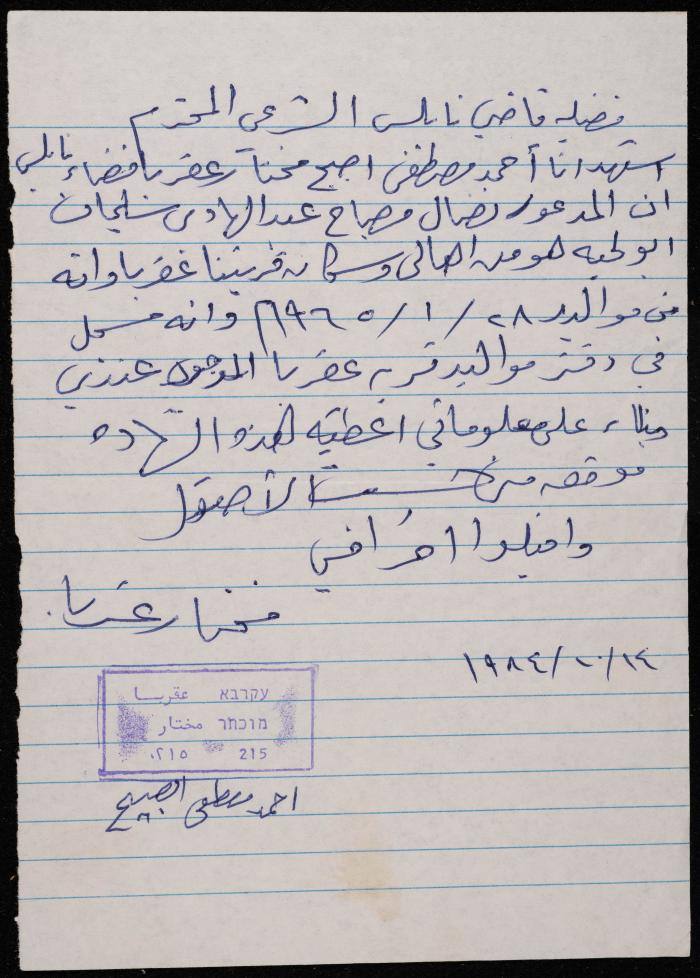 فضيلة قاضي نابلس الشرعي المحترم
اشهد انا أحمد مصطفى اصبح مختار عقربا قضاء نابلس
ان المدعو نضال مصباح عبد الهادي سليمان
ابو لحيه هو من اهالي وسكان قريتنا عقربا وانه
من مواليد ٢٨/١/١٩٦٥م وانه مسجل
في دفتر مواليد قريه عقربا الموجود عندي
وبناء على معلوماتي اعطيه هذه الشهاده
موقعه مني حسب الأصول
واقبلوا احترامي
مختار عقربا.
١٩٨٤/١٠/١٤
עקרבא عقربا
מוכתר مختار
215 ٢١٥.
احمد مصطفى اصبيح